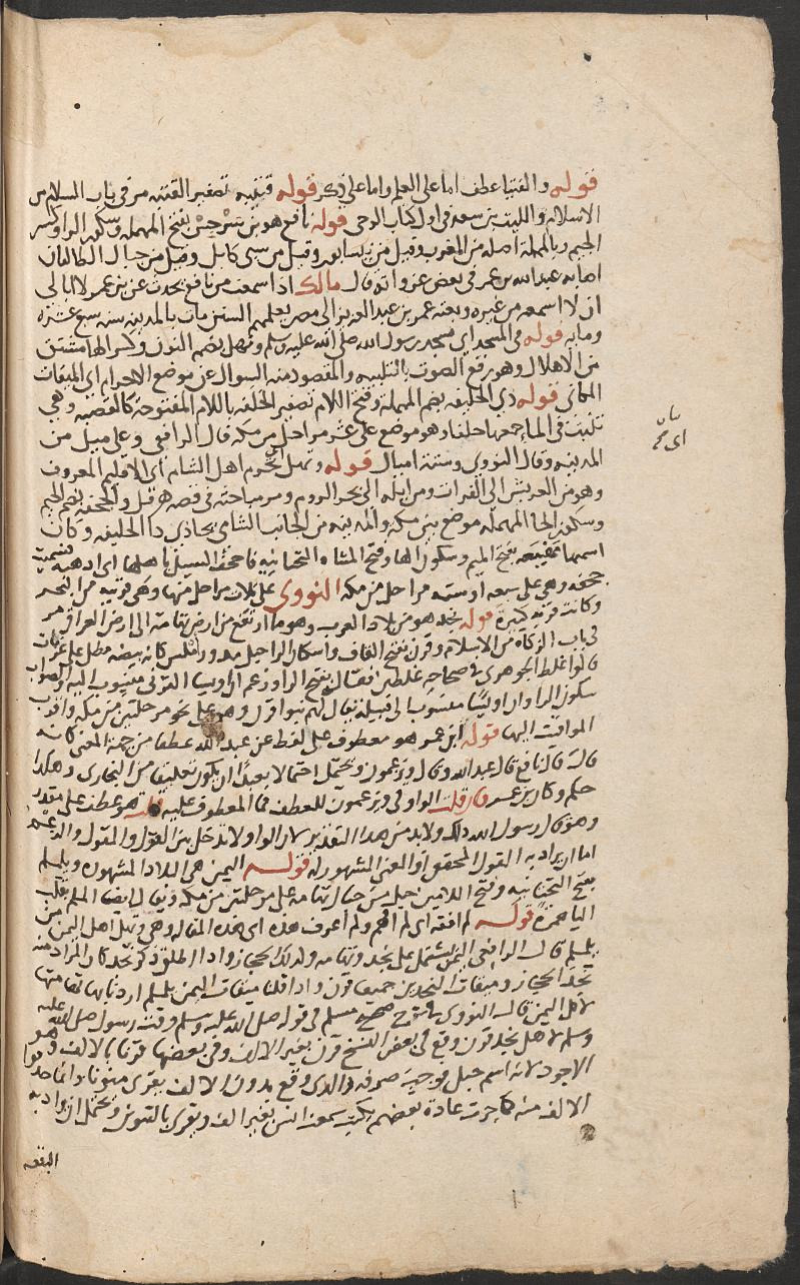 قوله والفتيا عطف اما على العلم واما على ذكر قوله قتيبة تصغير القتبة مر في باب السلام من
الاسلام والليث بن سعد في اول كتاب الوحي قوله نافع هو بن سرجس بفتح المهملة وسكون الراء وكسر
الجيم وبالمهملة اصله من المغرب وقيل من نيسابور وقيل من سبي كابل وقيل من جبال الطالقان
اصابه عبد الله بن عمر في بعض غزواته قال مالك اذا سمعت من نافع يحدث عن بن عمر لا ابالي
ان لا اسمعه من غيره وبعثه عمر بن عبد العزيز الى مصر يعلمهم السنن مات بالمدينة سنة سبع عشرة
وماية قوله في المسجد اي مسجد رسول الله صلى الله عليه وسلم ونهل بضم النون وكسر الها مشتق
من الاهلال وهو رفع الصوت بالتلبية والمقصود منه السوال عن موضع الاحرام اي الميقات
المكاني قوله ذي الحليفة بضم المهملة وفتح اللام تصغير الحلفة باللام المفتوحة كالقصبة وهي
تنبت في الماء جمعها حلفاء وهو موضع على عشر مراحل من مكة قال الرافعي وعلى ميل من
المدينة وقال النووي وستة اميال قوله ويهل اهل الشام اي الاقليم المعروف
وهو من العريش الى الفرات ومن ايلة الى بحر الروم ومر مباحثه في قصة هرقل والجحفة بضم الجيم
وسكون الحا المهملة موضع بين مكة والمدينة من الجانب الشامي يحاذي ذا الحليفة وكان
اسمها مهيعة بفتح الميم وسكون الها وفتح المثناة التحتانية فاجحف السيل باهلها اي اذهبه فسميت
جحفة وهي على سبعة او ستة مراحل من مكة النووي على ثلاث مراحل منها وهي قريبة من البحر
وكانت قرية كبيرة قوله نجد هو من بلاد العرب وهو ما ارتفع من ارض تهامة الى ارض العراق مر
في باب الزكاة من الاسلام وقرن بفتح القاف واسكان الراء جبل مدور املس كانه بيضة مطل على عرفات
قالوا غلط الجوهري في صحاحه غلطين فقال بفتح الراء وزعم ان اويسا القرني منسوب اليه والصواب
سكون الراء وان اويسا منسوب الى قبيلة يقال لهم بنو قرن وهو على نحو مرحلتين من مكة واقرب
المواقيت اليها قوله ابن عمر هو معطوف على لفظ عن عبد الله عطفا من جهة المعنى كانه
قال قال نافع قال عبد الله وقال ويزعمون ويحتمل احتمالا بعيدا ان يكون تعليقا من البخاري وهكذا
حكم وكان بن عمر فان قلت الواو في ويزعمون للعطف فما المعطوف عليه قلت هو عطف على مقدر
وهو قال رسول الله ذلك ولابد من هذا التقدير لان الواو لا تدخل بين القول والمقول والزعم
اما اريد به القول المحقق او المعنى المشهور له قوله اليمن هي البلاد المشهورة ويلملم
بفتح التحتانية وفتح اللامين جبل من جبال تهامة على مرحلتين من مكة ويقال ايضا الملم بقلب
الياء همزة قوله لم افقه اي لم افهم ولم اعرف هذه اي هذه المقالة وهي ويهل اهل اليمن من
يلملم قال الرافعي اليمن يشتمل على نجد وتهامة وكذلك الحجاز واذا اطلق ذكر نجد كان المراد منه
نجد الحجاز وميقات النجدين جميعا قرن واذا قلنا ميقات اليمن يلملم اردنا بها تهامتها
لا كل اليمن قال النووي في شرح صحيح مسلم في قوله صلى الله عليه وسلم وقت رسول صلى الله عليه
وسلم لاهل نجد قرن وقع في بعض النسخ قرن بغير الالف وفي بعضها قرنا بالالف وهو
الاجود لانه اسم جبل فوجب صرفه والذي وقع بدون الالف يقرى منونا وانما حذفوا
الالف منه كما جرت عادة بعضهم يكتب سمعت انس بغير الف ويقرى بالتنوين ويحتمل ان يراد به
البقعة